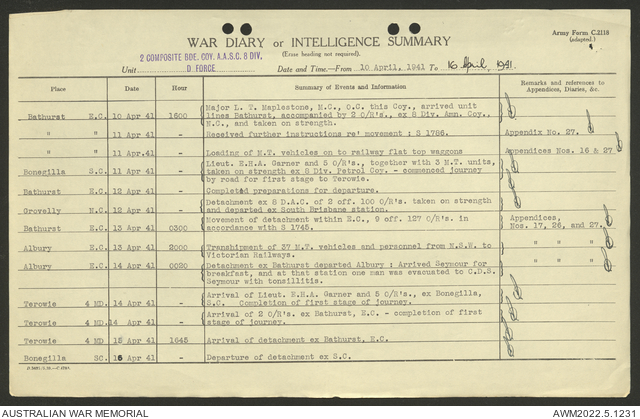 Army Form C.2118
(adapted.)
WAR DIARY or INTELLIGENCE SUMMARY
(Erase heading not required).
2 COMPOSITE BDE. COY. A.A.S.C. 8 DIV.
Unit D FORCE Date and Time.—From 10 April, 1941 To 16 April, 1941.
Place Date Hour Summary of Events and Information Remarks and references to Appendices, Diaries, &c.
Bathurst E.C. 10 Apr 41 1600 Major L. T. Maplestone, M.C., O.C. this Coy., arrived unit
lines Bathurst, accompanied by 2 O/R's., ex 8 Div. Amn. Coy.,
N.C., and taken on strength.
" " 11 Apr 41 - Received further instructions re' movement ; S 1786. Appendix No. 27.
" " 11 Apr. 41 - Loading of M.T. vehicles on to railway flat top waggons Appendices Nos. 16 & 27
Bonegilla S.C. 11 Apr 41 - Lieut. E.H.A. Garner and 5 O/R's., together with 3 M.T. units,
taken on strength ex 8 Div. Petrol Coy. - commenced journey
by road for first stage to Terowie.
Bathurst E.C. 12 Apr 41 - Completed preparations for departure.
Grovelly N.C. 12 Apr 41 - Detachment ex 8 D.A.C. of 2 off. 100 O/R's. taken on strength
and departed ex South Brisbane station.
Bathurst E.C. 13 Apr 41 0300 Movement of detachment within E.C., 9 off. 127 O/R's. in
accordance with S 1745. Appendices,
Nos. 17, 26, and 27.
Albury E.C. 13 Apr 41 2000 Transhipment of 37 M.T. vehicles and personnel from N.S.W. to
Victorian Railways. " " "
Albury E.C. 14 Apr 41 0020 Detachment ex Bathurst departed Albury ; Arrived Seymour for
breakfast, and at that station one man was evacuated to C.D.S.
Seymour with tonsillitis. " " "
Terowie 4 MD. 14 Apr 41 - Arrival of Lieut. E.H.A. Garner and 5 O/R's., ex Bonegilla,
S.C. Completion of first stage of journey.
Terowie 4 MD. 14 Apr 41 - Arrival of 2 O/R's. ex Bathurst, E.C. - completion of first
stage of journey.
Terowie 4 MD 15 Apr 41 1645 Arrival of detachment ex Bathurst, E.C.
Bonegilla SC. 16 Apr 41 - Departure of detachment ex S.C.
AUSTRALIAN WAR MEMORIAL AWM2022.5.1231